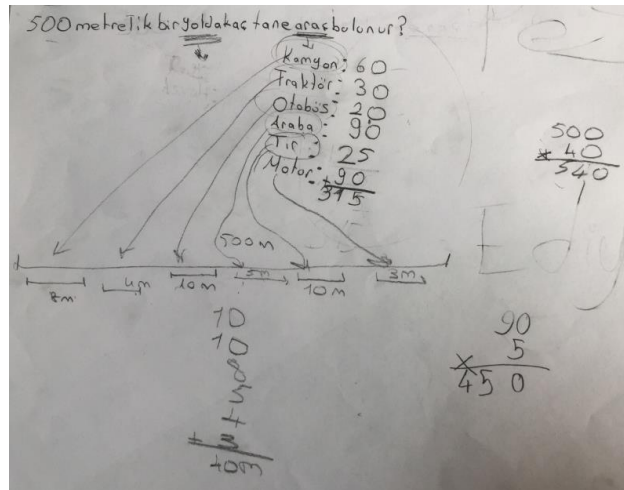 500 metrelik bir yolda kaç tane araç bulunur?
Kamyon: 60
Traktör: 30
Otobüs: 20
Araba: 90
Tır: 25
Motor: +90
315
500
x 40
540
500m
8m 4m 10m 5m 10m 3m
10
10
8
90
x 5
450